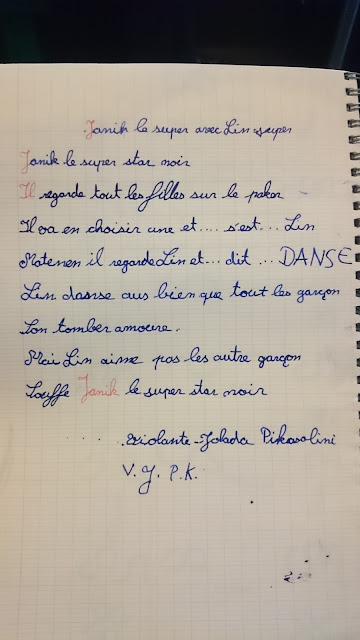 Janik le super avec Lin-super
Janik le super star noir
Il regarde tout les filles sur le
Il va en choisir une et.... s'est... Lin
Matenen il regarde Lin et... dit... DANSE
Lin dansse aus bien que tout les garçon
Son tomber amoure.
Mai Lin aime pas les autre garçon
Janik le super star noir
.... Violante-Jolada Pikasolini
V. J. P.K.